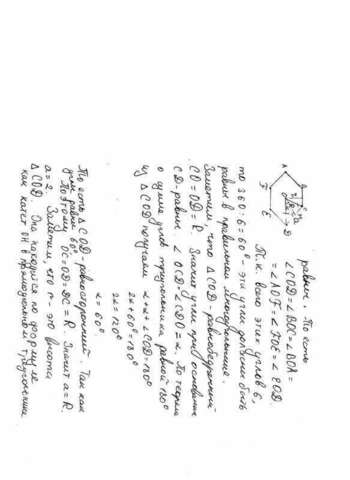 равны. То есть
∠COD = ∠BOC = ∠BOA =
= ∠AOF = ∠FOE = ∠EOD.
Т.к. всего этих углов 6,
то 360 : 6 = 60° - эти углы должны быть
равны в правильном многоугольнике.
Заметим что ΔCOD - равнобедренный
CO = OD = R. Значит углы при основании
CD - равны. ∠OCD = ∠CDO = α. По теореме
о сумме углов треугольника равной 180°
из ΔCOD получаем α + α + ∠COD = 180°
2α + 60° = 180°
2α = 120°
α = 60°
То есть ΔCOD - равносторонний. Так как
углы равны 60°.
Поэтому OC = OD = DC = R. Значит a = R.
a = 2. Заметим, что r - это высота
ΔCOD. Она находится по формуле
как катет OH в прямоугольном треугольнике.
A
F
E
D